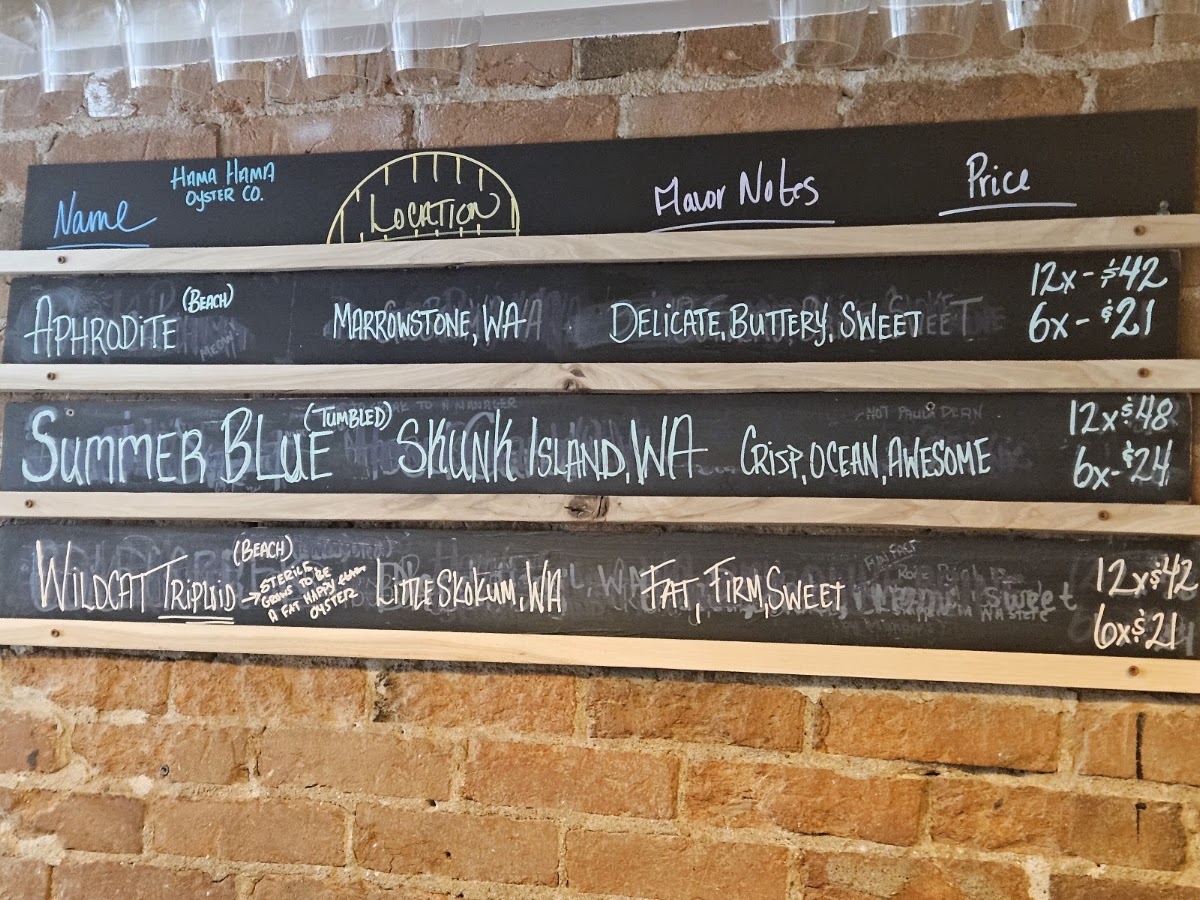 Name
HAMA HAMA
OYSTER CO.
LOCATION
Flavor Notes
Price
APHRODITE (BEACH)
MARROWSTONE, WA
DELICATE, BUTTERY, SWEET
12x - $42
6x - $21
MEOW
SUMMER BLUE (TUMBLED)
SKUNK ISLAND, WA
CRISP, OCEAN, AWESOME
12x $48
6x - $24
TO A MANAGER
- NOT PAULA DEAN
WILDCAT TRIPLOID (BEACH)
→ STERILE,
GROWS TO BE
A FAT HAPPY
OYSTER
LITTLE SKOKUM, WA
FAT, FIRM, SWEET
12x $42
6x $21
FUN FACT
Sweet